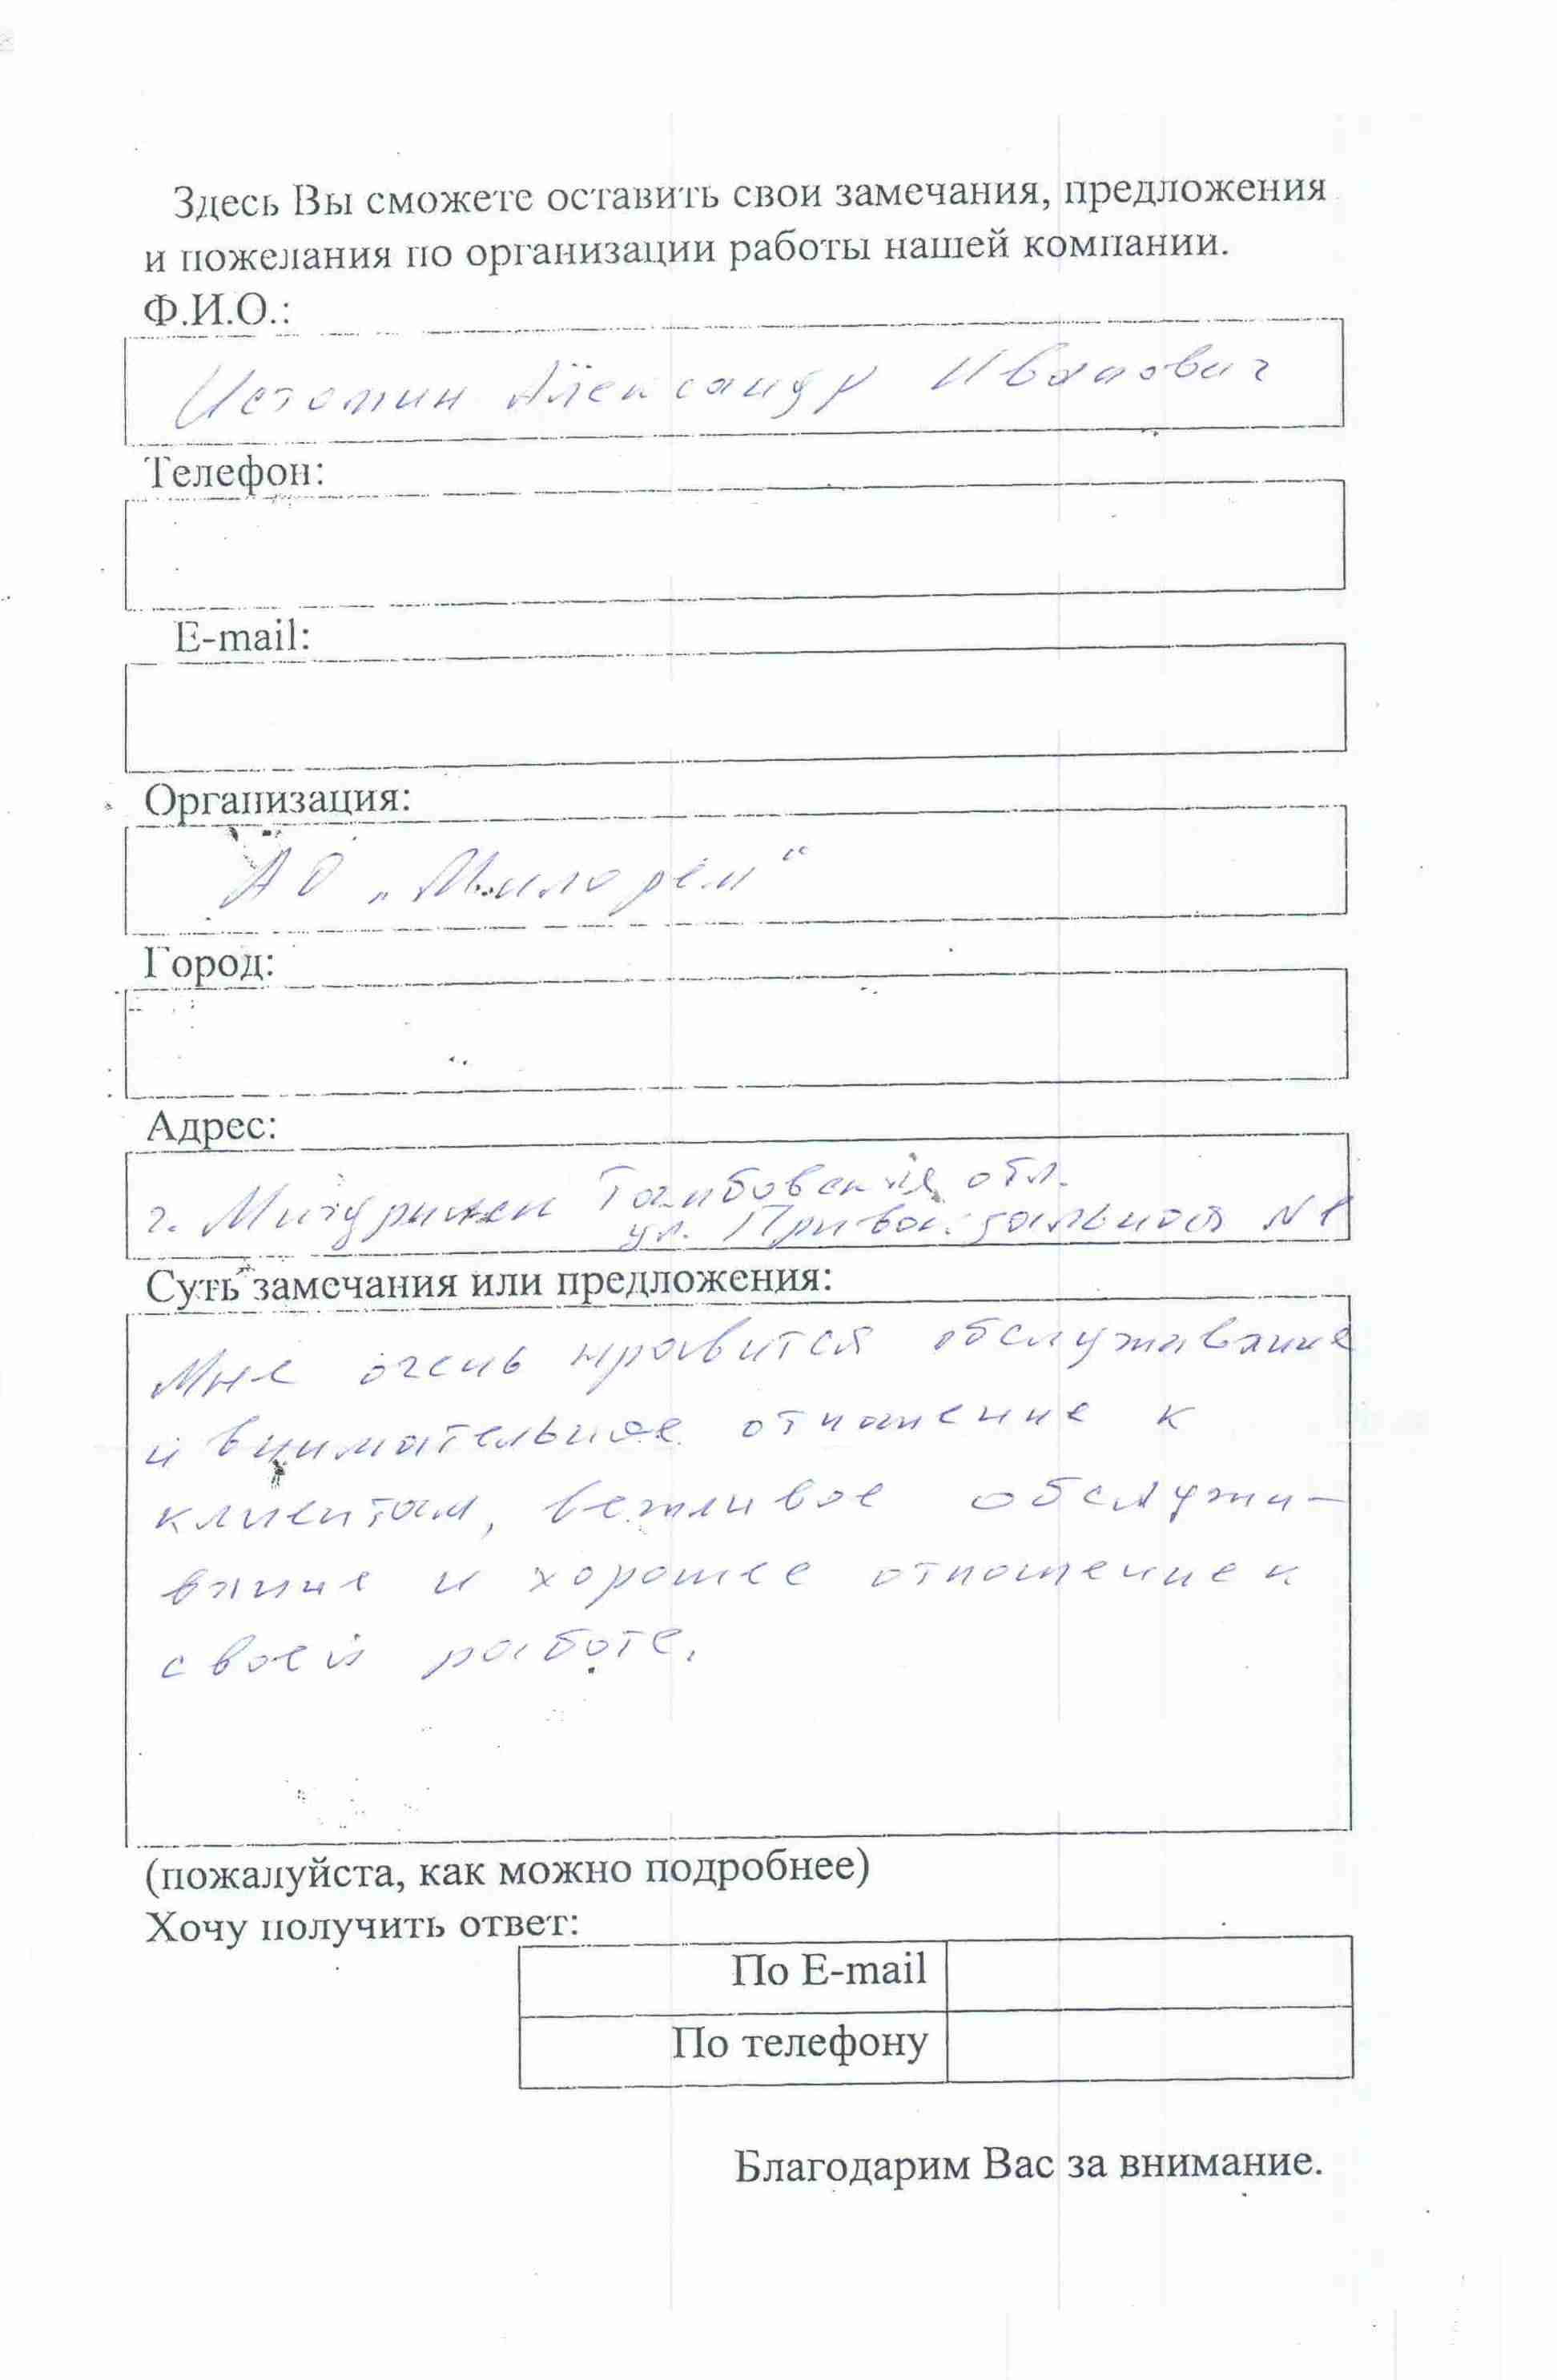 Здесь Вы сможете оставить свои замечания, предложения
и пожелания по организации работы нашей компании.
Ф.И.О.:
Истомин Александр Иванович
Телефон:
E-mail:
Организация:
АО „Милорем“
Город:
Адрес:
г. Мичуринск Тамбовская обл.
ул. Привокзальная N1
Суть замечания или предложения:
Мне очень нравится обслуживание
и внимательное отношение к
клиентам, вежливое обслужи-
вание и хорошее отношение к
своей работе.
(пожалуйста, как можно подробнее)
Хочу получить ответ:
По E-mail
По телефону
Благодарим Вас за внимание.